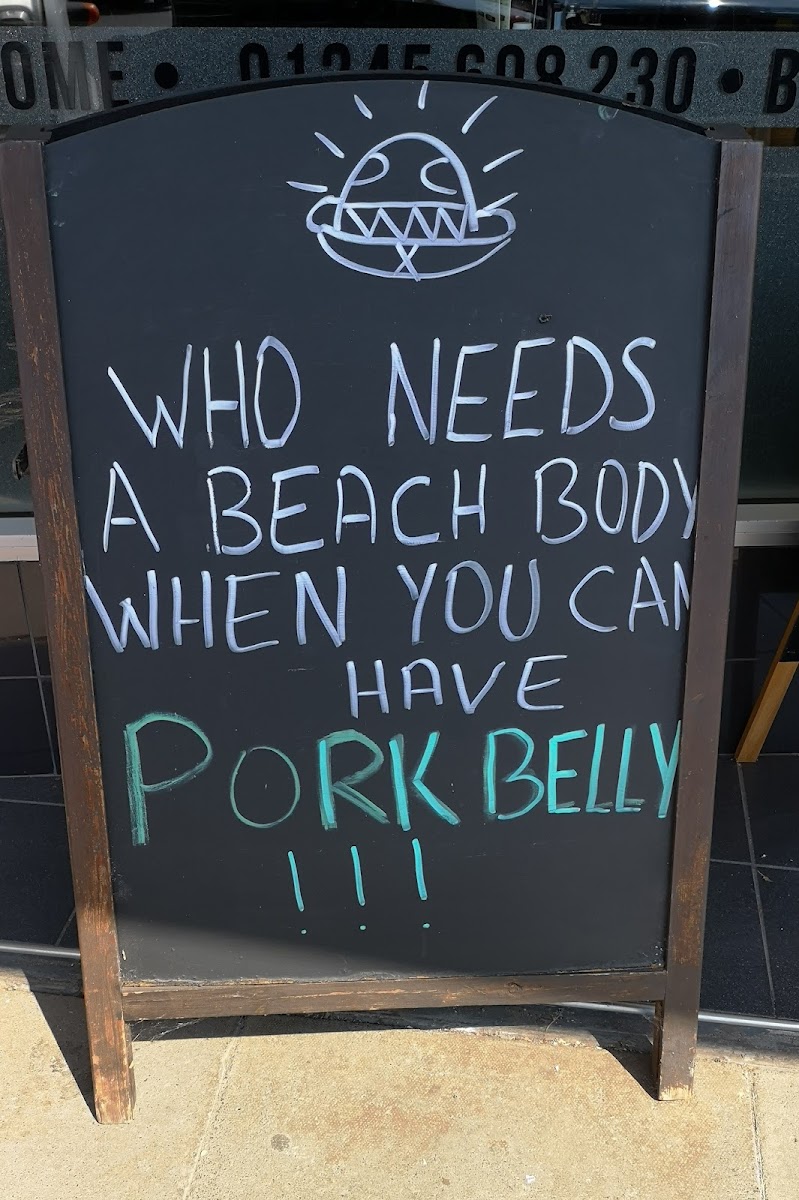 OME • 01245 608 230 • B
WHO NEEDS
A BEACH BODY
WHEN YOU CAN
HAVE
PORK BELLY
!!!